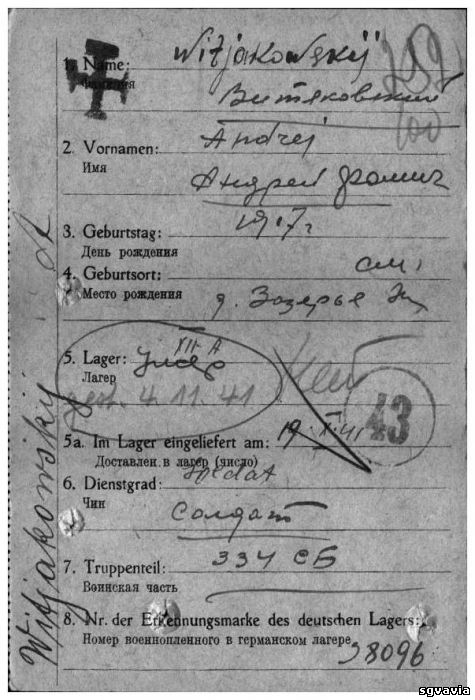 Witjakowskij
252
1. Name:
Фамилия
Витяковский
100
Andrej
2. Vornamen:
Имя
Андрей Фомич
1917 г
3. Geburtstag:
День рождения
4. Geburtsort:
Место рождения
д. Зазерье
XII A
5. Lager:
Лагер
gest. 4.11.41
43
5a. Im Lager eingeliefert am:
Доставлен в лагер (число)
Soldat
6. Dienstgrad:
Чин
Солдат
7. Truppenteil: 334 СБ
Воинская часть
8. Nr. der Erkennungsmarke des deutschen Lagers:
Номер военнопленного в германском лагере
38096
Witjakowskij
sgvavia